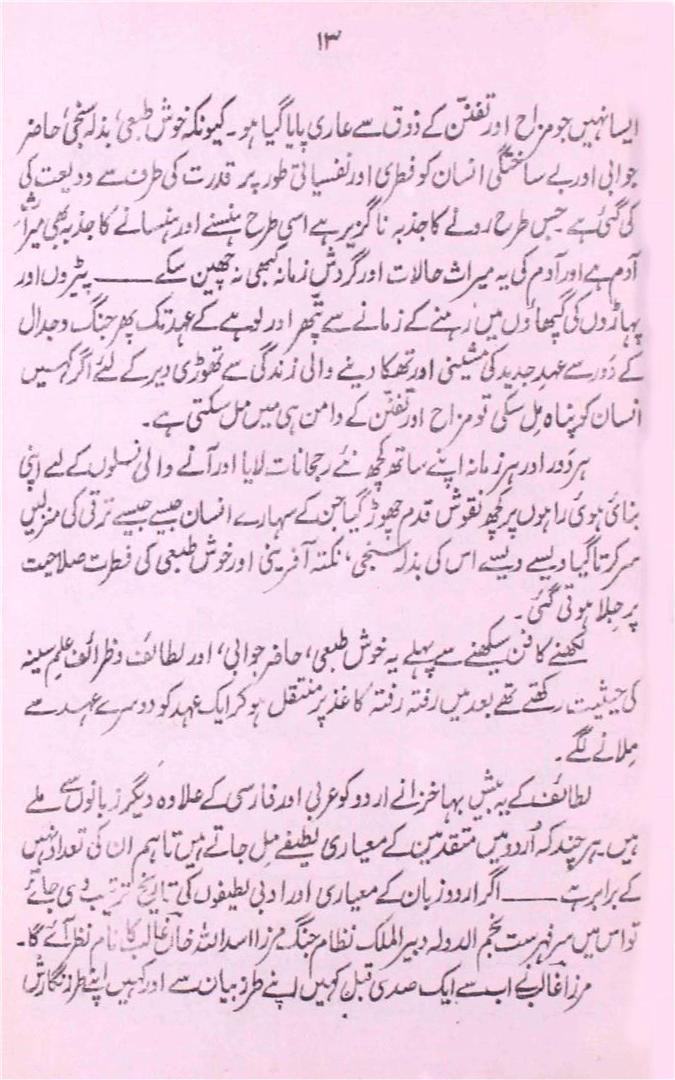 ۱۳
ایسا نہیں جو مزاح اور تفنّن کے ذوق سے عاری پایا گیا ہو۔ کیونکہ خوش طبعی، بذلہ سنجی، حاضر
جوابی اور بے ساختگی انسان کو فطری اور نفسیاتی طور پر قدرت کی طرف سے ودیعت کی
کی گئی ہے۔ جس طرح رونے کا جذبہ ناگزیر ہے اسی طرح ہنسنے اور ہنسانے کا جذبہ بھی میراثِ
آدم ہے اور آدم کی یہ میراث حالات اور گردشِ زمانہ کبھی نہ چھین سکے ــــــ پیڑوں اور
پہاڑوں کی گپھاؤں میں رہنے کے زمانے سے پتّھر اور لوہے کے عہد تک پھر جنگ و جدال
کے دَور سے عہدِ جدید کی مشینی اور تھکا دینے والی زندگی سے تھوڑی دیر کے لئے اگر کہیں
انسان کو پناہ مِل سکی تو مزاح اور تفنّن کے دامن ہی میں مل سکتی ہے۔
ہر دَور اور ہر زمانہ اپنے ساتھ کچھ نئے رجحانات لایا اور آنے والی نسلوں کے لیے اپنی
بنائی ہوئی راہوں پر کچھ نقوش قدم چھوڑ گیا جن کے سہارے انسان جیسے جیسے ترقی کی منزلیں
سر کرتا گیا ویسے ویسے اس کی بذلہ سنجی، نکتہ آفرینی اور خوش طبعی کی فطرت صلاحیت
پر جِلا ہوتی گئی۔
لکھنے کا فن سیکھنے سے پہلے یہ خوش طبعی، حاضر جوابی، اور لطائف و ظرائف علمِ سینہ
کی حیثیت رکھتے تھے بعد میں رفتہ رفتہ کاغذ پر منتقل ہو کر ایک عہد کو دوسرے عہد سے
مِلانے لگے۔
لطائف کے یہ بیش بہا خزانے اردو کو عربی اور فارسی کے علاوہ دیگر زبانوں سے ملے
ہیں۔ ہر چند کہ اُردو میں متقدمین کے معیاری لطیفے مِل جاتے ہیں تاہم ان کی تعداد نہیں
کے برابر ہے ــــــ اگر اردو زبان کے معیاری اور ادبی لطیفوں کی تاریخ ترتیب دی جائے
تو اس میں سرِ فہرست نجم الدولہ دبیر الملک نظام جنگ مرزا اسد اللہ خاں غالب کا نام نظر آئے گا۔
مرزا غالب نے اب سے ایک صدی قبل کہیں اپنے طرزِ بیان سے اور کہیں اپنے طرزِ نگارش